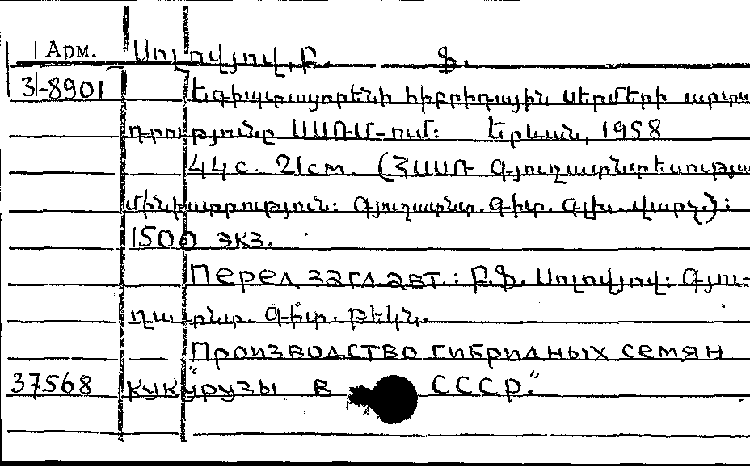 Арм. Սոլովյով, Բ. Ֆ.
3-8901 Եգիպտացորենի հիբրիդային սերմերի արտա
դրությունը ՍՍՌՄ-ում: Երևան, 1958
44с. 21см. (ՀՍՍՌ Գյուղատնտեսության
մինիստրություն: Գյուղատնտ. Գիտ. Գլխ. վարչ.):
1500 экз.
Перед загл.авт.: Բ.Ֆ. Սոլովյով: Գյու-
ղատնտ. Գիտ. թեկն.
Производство гибридных семян
37568 кукурузы в СССР."